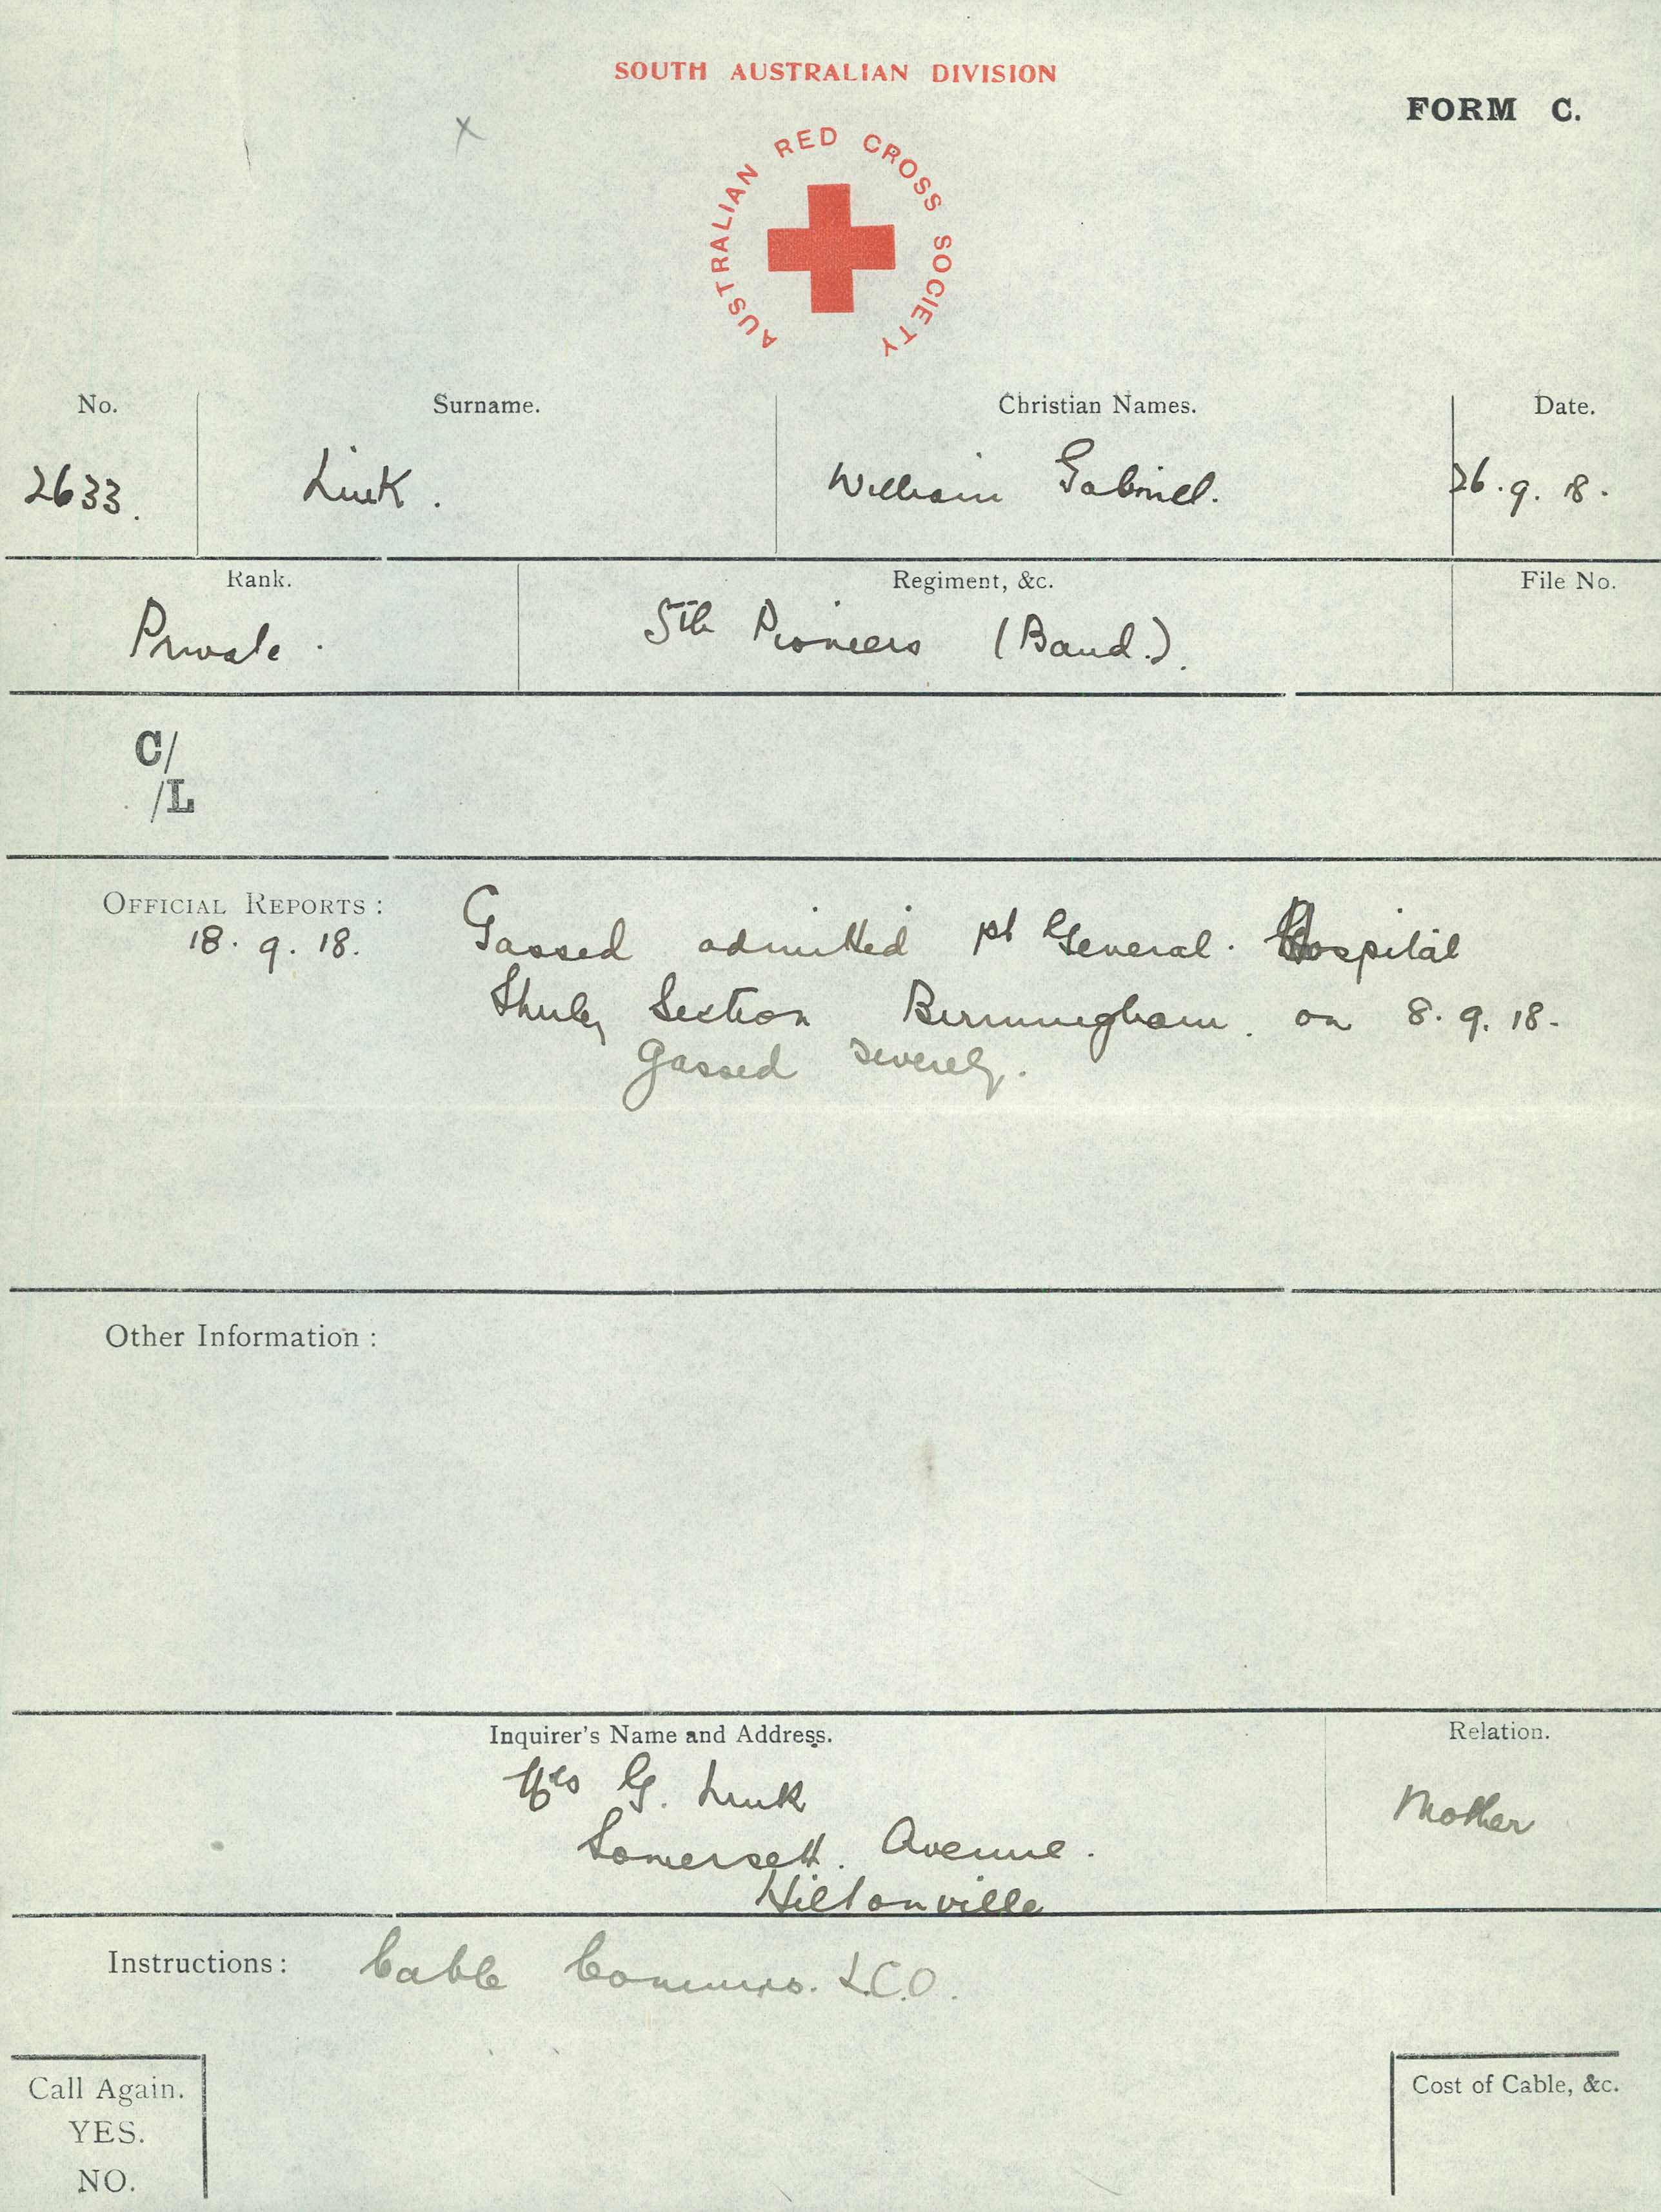 SOUTH AUSTRALIAN DIVISION
FORM C.
AUSTRALIAN RED CROSS SOCIETY
No. Surname. Christian Names. Date.
2633. Link. William Gabriel. 26.9.18.
Rank. Regiment, &c. File No.
Private. 5th Pioneers (Band.).
C/
/L
OFFICIAL REPORTS:
18.9.18. Gassed admitted 1st General. Hospital
Section Birmingham. on 8.9.18.
Gassed severely.
Other Information:
Inquirer's Name and Address. Relation.
Mrs G. Link Mother
Somersett. Avenue.
Hiltonville
Instructions: Cable Commrs. L.C.O.
Call Again. Cost of Cable, &c.
YES.
NO.